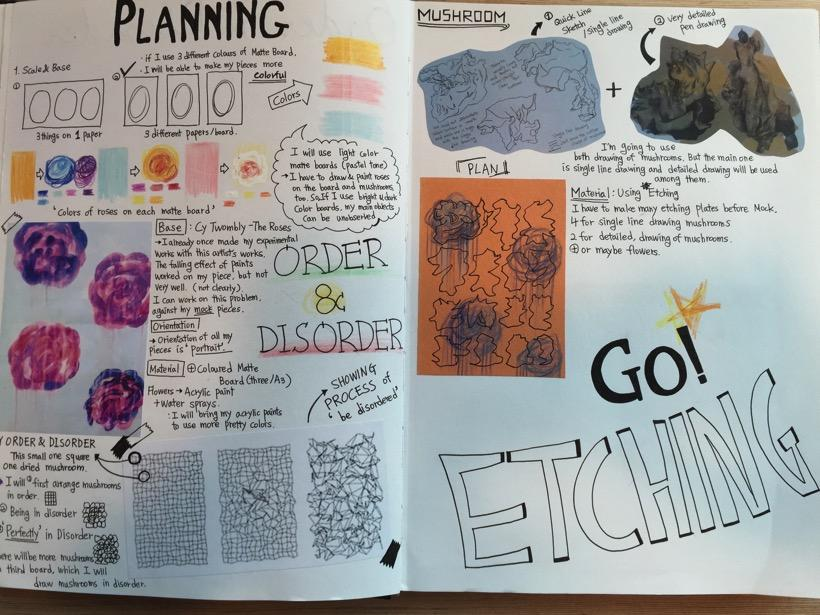 PLANNING
· if I use 3 different colours of Matte Board,
I will be able to make my pieces more
colorful
1. Scale & Base
①
②
3 things on 1 paper
3 different papers/board.
Colors
I will use light color
matte boards (pastel tone)
→ I have to draw & paint roses
on the board and mushrooms
too. So if I use bright & dark
Color boards, my main objects
Can be unobserved.
'Colors of roses on each matte board'
Base : Cy Twombly - The Roses
→ I already once made my experimental
works with this artist's works.
The falling effect of paints
worked on my piece, but not
very well. (not clearly).
I can work on this problem,
against my mock pieces.
Orientation
→ Orientation of all my
pieces is 'portrait'.
Material ⊕ Coloured Matte
Board (three/A3)
Flowers → Acrylic paint
+ Water sprays.
: I will bring my acrylic paints
to use more pretty colors.
ORDER
&
DISORDER
SHOWING
PROCESS of
'be disordered'
Y ORDER & DISORDER
This small one square
one dried mushroom.
I will first arrange mushrooms
in order.
② Being in disorder
'Perfectly' in Disorder
ere will be more mushrooms
third board, which I will
draw mushrooms in disorder.
MUSHROOM
① Quick Line
Sketch / Single line
drawing
② very detailed
pen drawing
+
I'm going to use
both drawing of mushrooms. But the main one
is single line drawing and detailed drawing will be used
among them.
PLAN
Material : Using Etching
I have to make many etching plates before Mock.
4 for single line drawing mushrooms
2 for detailed, drawing of mushrooms.
⊕ or maybe flowers.
Go!
ETCHING